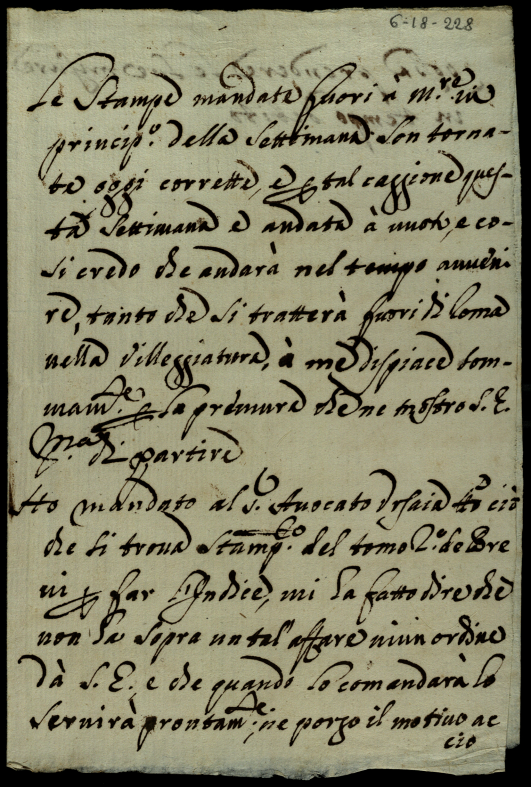 6-18-228
Le Stampe mandate fuori a M.re in
princip.o della Settimana son torna-
te oggi corrette, e p tal caggione ques-
ta Settimana è andata à vuoto, e co-
si credo che andarà nel tempo avveni-
re, tanto che si tratterà fuori di Roma
nella Villeggiatura, à me dispiace som-
mam.te p la premura che ne mostrò S. E.
p.a di partire
Ho mandato al S. Avocato tto ciò
che si trova Stamp.o del tomo 2.o de Bre
vi p far l'Indice, mi ha fatto dire che
non ha sopra un tal'affare niun ordine
dà S. E. e che quando lo comandarà lo
servirà prontam.te, ne porgo il motivo ac
ciò